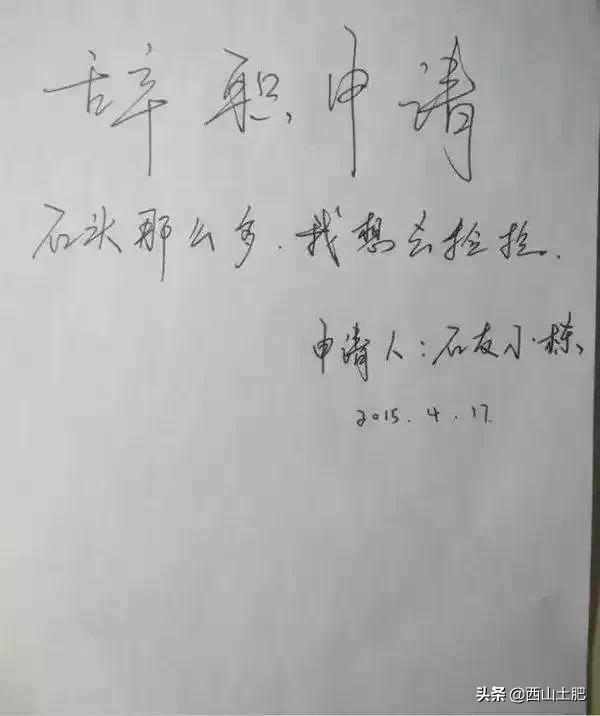 辞职申请
石头那么多.我想去捡捡.
申请人:石友小栋
2015.4.17.
头条 @西山土肥